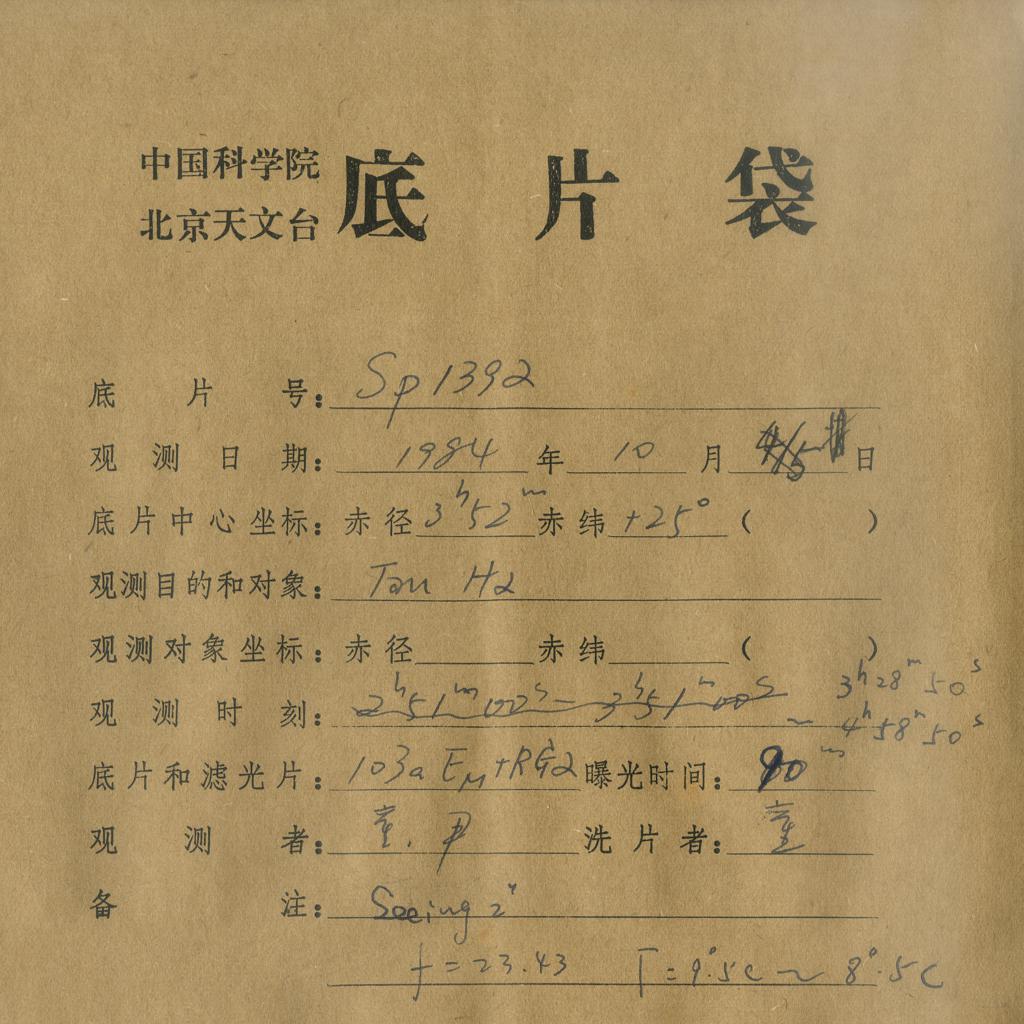 中国科学院
北京天文台
底片袋
底片号：Sp 1392
观测日期：1984年10月4/5日
底片中心坐标：赤径3h52m赤纬+25°（ ）
观测目的和对象：Tau Hα
观测对象坐标：赤径 赤纬 （ ）
观测时刻：2h51m00s－3h51m00s 3h28m50s
～4h58m50s
底片和滤光片：103a EM+RG2 曝光时间：90m
观测者：童.尹 洗片者：童
备注：Seeing 2"
f=23.43 T=9°.5C～8°.5C